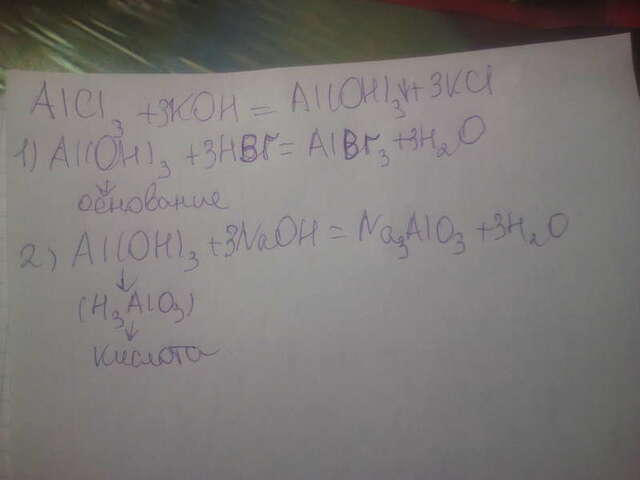 AlCl₃ + 3KOH = Al(OH)₃↓ + 3KCl
1) Al(OH)₃ + 3HBr = AlBr₃ + 3H₂O
↓
основание
2) Al(OH)₃ + 3NaOH = Na₃AlO₃ + 3H₂O
↓
(H₃AlO₃)
↓
кислота